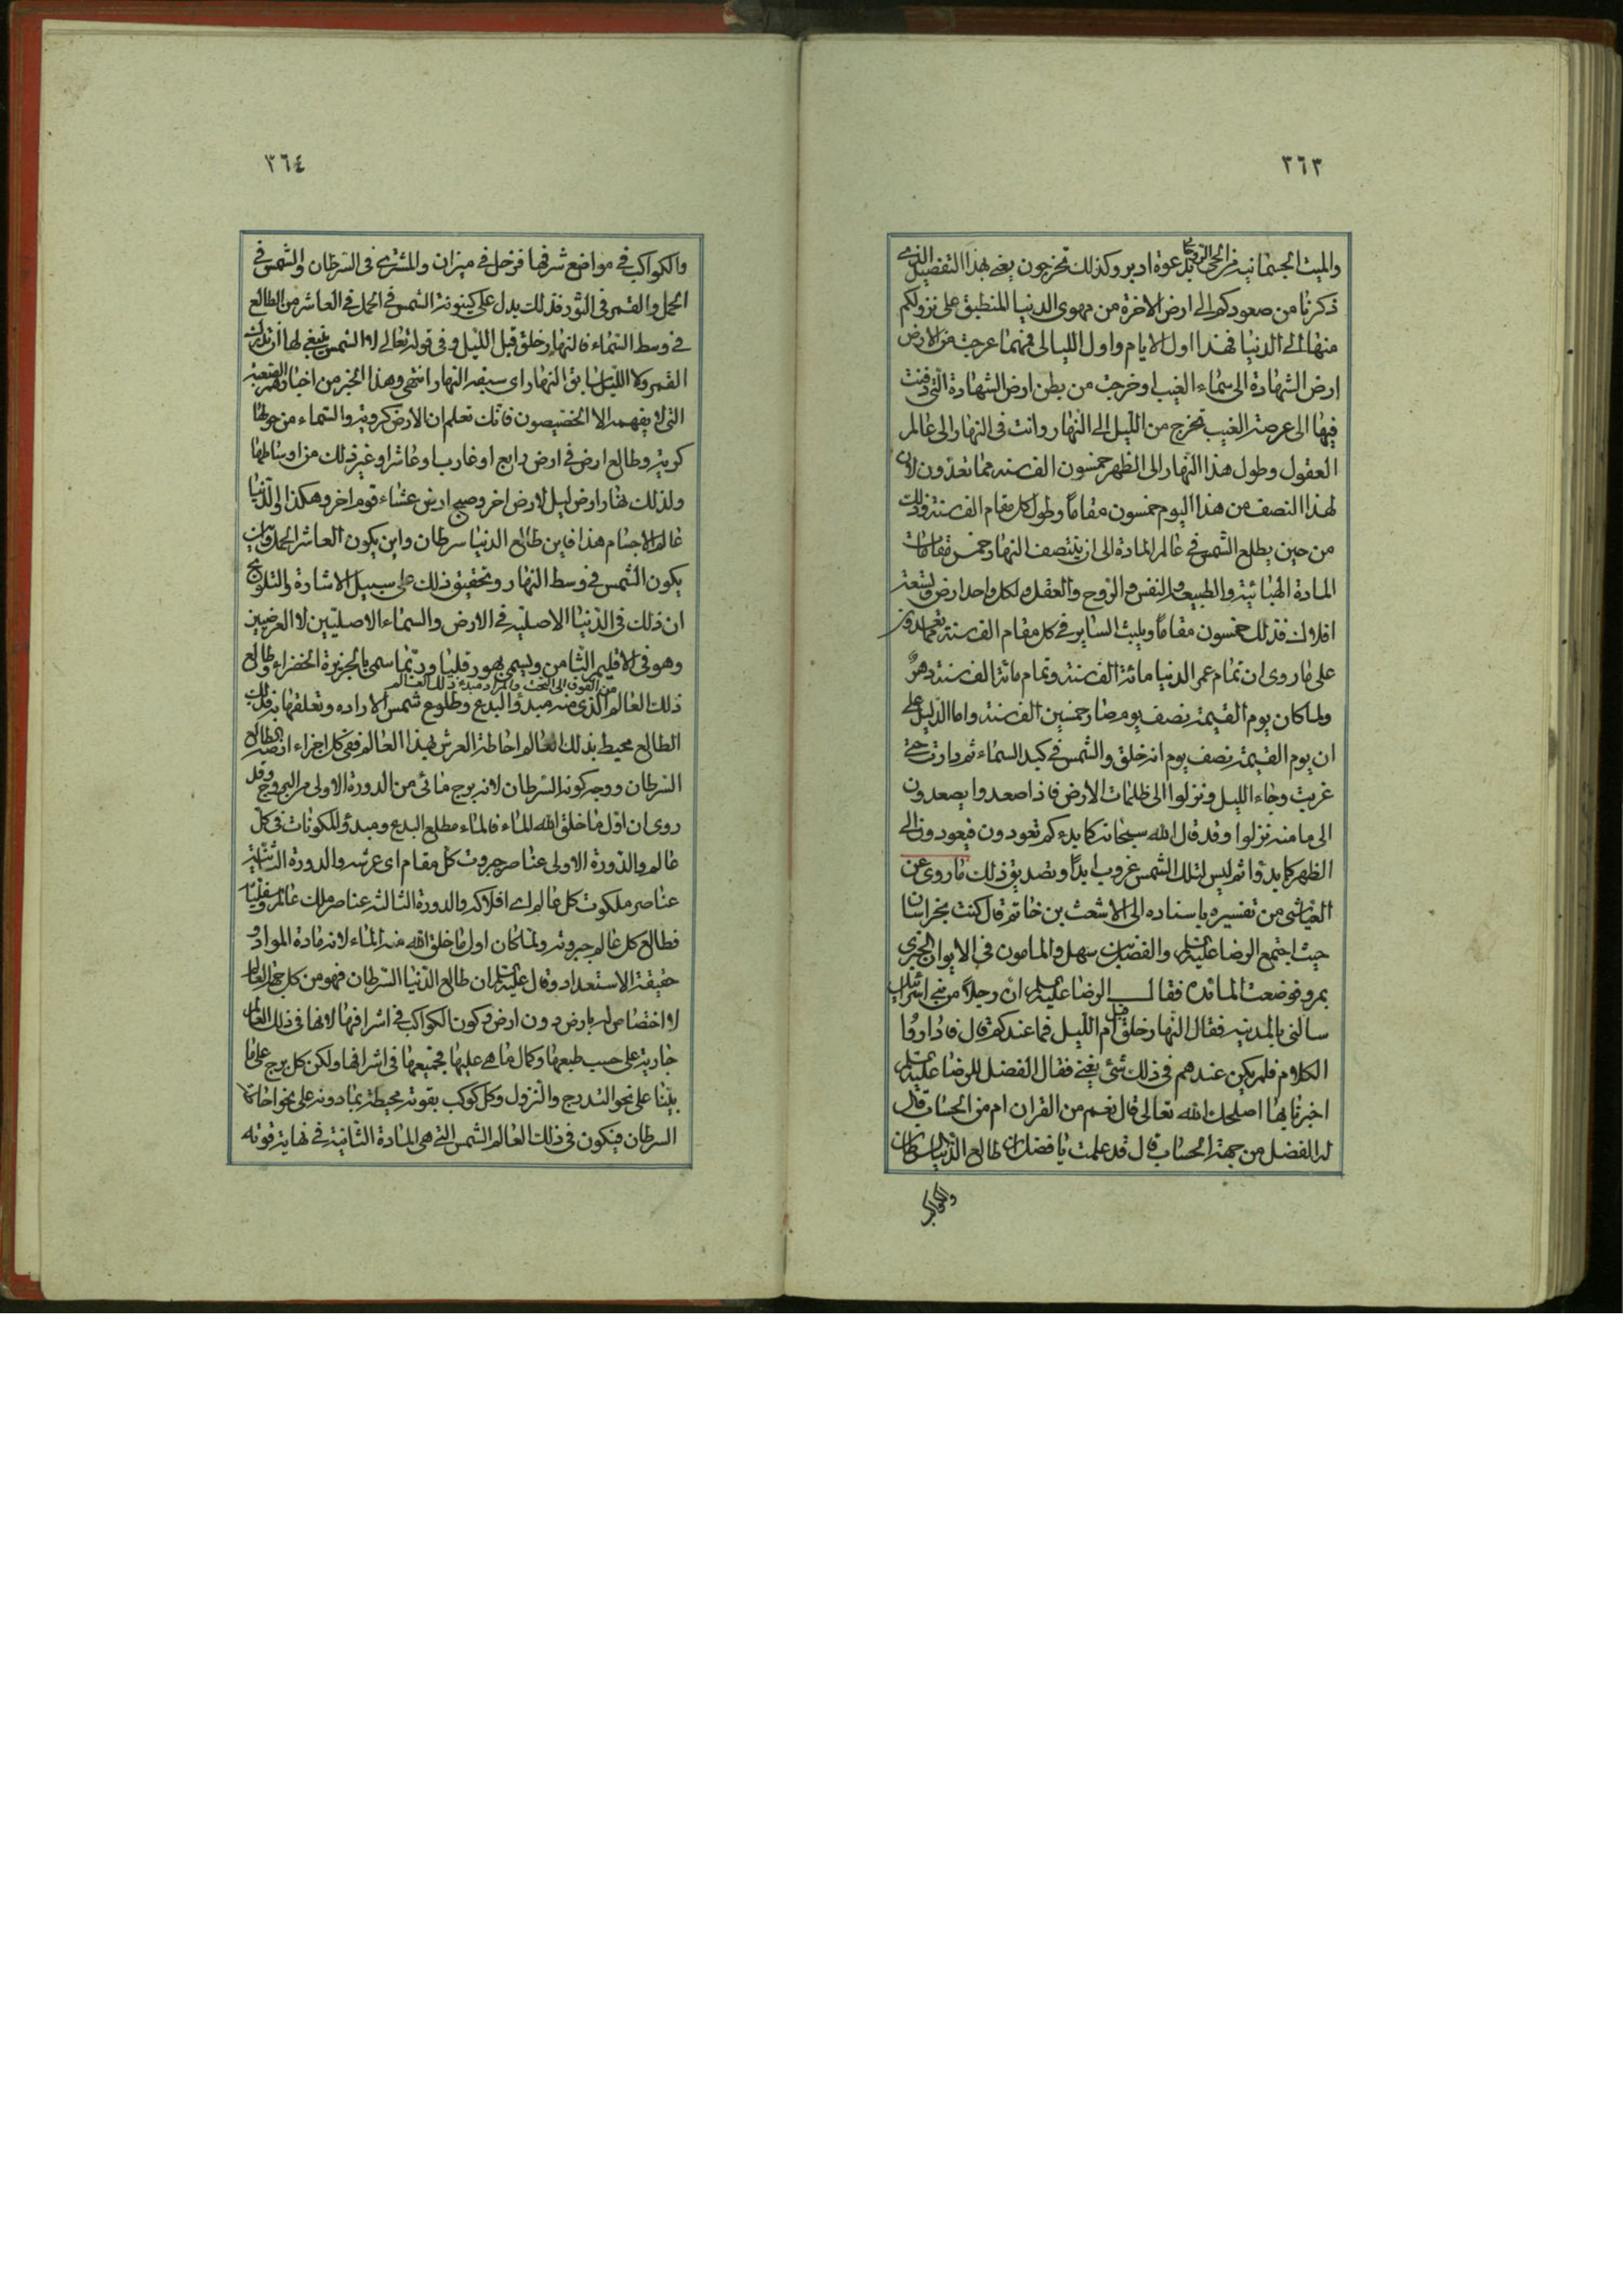 ٣٦٣
والميت الجسمانية من الحي الروحاني بدعوة ادبر وكذلك تخرجون يعني بهذا التفصيل الذي
ذكرنا من صعودكم الى ارض الاخرة من مهوى الدنيا المنطبق على نزولكم
منها الى الدنيا فهذا اول الايام واول الليالى فمهما عرجت من الارض
ارض الشهادة الى سماء الغيب او خرجت من بطن ارض الشهادة التي دفنت
فيها الى عرصة الغيب تخرج من الليل الى النهار وانت في النهار الى عالم
العقول وطول هذا النهار الى الظهر خمسون الف سنة مما تعدون لان
لهذا النصف من هذا اليوم خمسون مقاماً وطول كل مقام الف سنة وذلك
من حين يطلع الشمس في عالم المادة الى ان ينتصف النهار وخمس مقامات
المادة الهبائية والطبيعة والنفس والروح والعقل ولكل واحد ارض وتسعة
افلاك فذلك خمسون مقاماً ويلبث الساير في كل مقام الف سنة
على ما روى ان تمام عمر الدنيا مائة الف سنة وتمام مائة الف سنة دهر
ولما كان يوم القيمة نصف يوم صار خمسين الف سنة واما الدليل على
ان يوم القيمة نصف يوم انه خلق والشمس في كبد السماء ثم دارت حتى
غربت وجاء الليل ونزلوا الى ظلمات الارض فاذا صعدوا يصعدون
الى ما منه نزلوا وقد قال الله سبحانه كما بدءكم تعودون فيعودون الى
الظهر كما بدؤا ثم ليس لتلك الشمس غروب ابداً وتصديق ذلك ما روى عن
العياشى من تفسيره باسناده الى الاشعث بن حاتم قال كنت بخراسان
حيث اجتمع الرضا عليه السلم والفضل بن سهل والمامون في الايوان الحبرى
بمرو فوضعت المائدة فقال الرضا عليه السلم ان رجلاً من بني اسرائيل
سالني بالمدينة فقال النهار خلق قبل ام الليل فما عندكم قال فاداروا
الكلام فلم يكن عندهم في ذلك شئ يعني فقال الفضل للرضا عليه السلم
اخبرنا بها اصلحك الله تعالى قال نعم من القران ام من الحساب قال
له الفضل من جهة الحساب قال قد علمت يا فضل ان طالع الدنيا السرطان
والكواكب
٣٦٤
والكواكب في مواضع شرفها فزحل في ميزان والمشترى في السرطان والشمس في
الحمل والقمر في الثور فذلك يدل على كينونة الشمس في الحمل في العاشر من الطالع
في وسط السماء فالنهار خلق قبل الليل وفي قوله تعالى لا الشمس ينبغي لها ان تدرك
القمر ولا الليل سابق النهار اى سبقه النهار انتهى وهذا الخبر من اخبارهم الصعبة
التى لا يفهمه الا الخصيصون فانك تعلم ان الارض كروية والسماء من حولها
كروية وطالع ارض في ارض رابع او غارب او عاشر او غير ذلك من اوساطها
ولذلك نهار ارض ليل لارض اخر وصبح ارض عشاء قوم اخر وهكذا والدنيا
عالم الاجسام هذا فاين طالع الدنيا سرطان واين يكون العاشر الحمل واين
يكون الشمس في وسط النهار وتحقيق ذلك على سبيل الاشارة والتلويح
ان ذلك في الدنيا الاصلية في الارض والسماء الاصليتين لا العرضيتين
وهو في الاقليم الثامن ويسمى بهورقليا وربما سمى بالجزيرة الخضراء وطالع
من الفوق الى التحت والمراد مبدء ذلك العالم
ذلك العالم الذى منه مبدؤ البدع وطلوع شمس الارادة وتعلقها به وذلك
الطالع محيط بذلك العالم احاطة العرش بهذا العالم ففي كل اجزاء ارضه الطالع
السرطان ووجه كونه السرطان لانه برج مائى من الدورة الاولى من البروج وقد
روى ان اول ما خلق الله الماء فالماء مطلع البدع ومبدؤ المكونات في كل
عالم والدورة الاولى عناصر جبروت كل مقام اى عرشه والدورة الثانية
عناصر ملكوت كل عالم اى افلاكه والدورة الثالثة عناصر ملك عالم وسفليات
فطالع كل عالم جبروته ولما كان اول ما خلق الله منه الماء لانه مادة المواد و
حقيقة الاستعداد وقال عليه السلم ان طالع الدنيا السرطان فهو من كل جهة العالم
لا اختصاص له بارض دون ارض وكون الكواكب في اشرافها لانها في ذلك العالم
جارية على حسب طبعها وكمال ما هي عليها فجميعها في اشرافها ولكن كل برج على ما
بيّنا على نحو التدرج والنزول وكل كوكب بقوته محيطة بما دونه على نحو احاطة
السرطان فيكون في ذلك العالم الشمس التي هي المادة الثانية في نهاية قوته